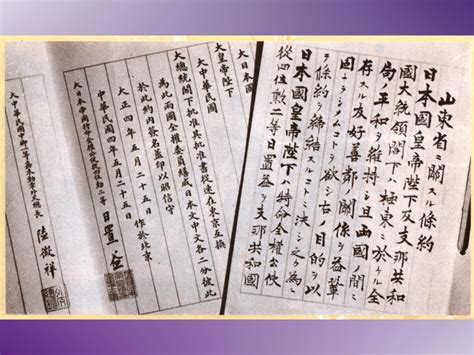 山東省ニ關スル條約
日本國皇帝陛下及支那共和
國大統領閣下ハ極東ニ於ケル全
局ノ平和ヲ維持シ且兩國ノ間ニ
存スル友好善鄰ノ關係ヲ益鞏
固ナラシメムコトヲ欲シ右目的ヲ以
テ條約ヲ締結スルコトニ決シ之カ為ニ
日本國皇帝陛下ハ特命全權公使
從四位勲二等日置益ヲ支那共和國
大日本國
大皇帝陛下
大中華民國
大總統閣下批准其批准書從速在東京互換
為此兩國全權委員繕成日本文中文各二分彼此
於此約內簽名蓋印以昭信守
大正四年五月二十五日 作於北京
中華民國四年五月二十五日
大日本帝國特命全權公使從四位勲二等 日置益
大中華民國中卿一等嘉禾勲章外交總長 陸徵祥